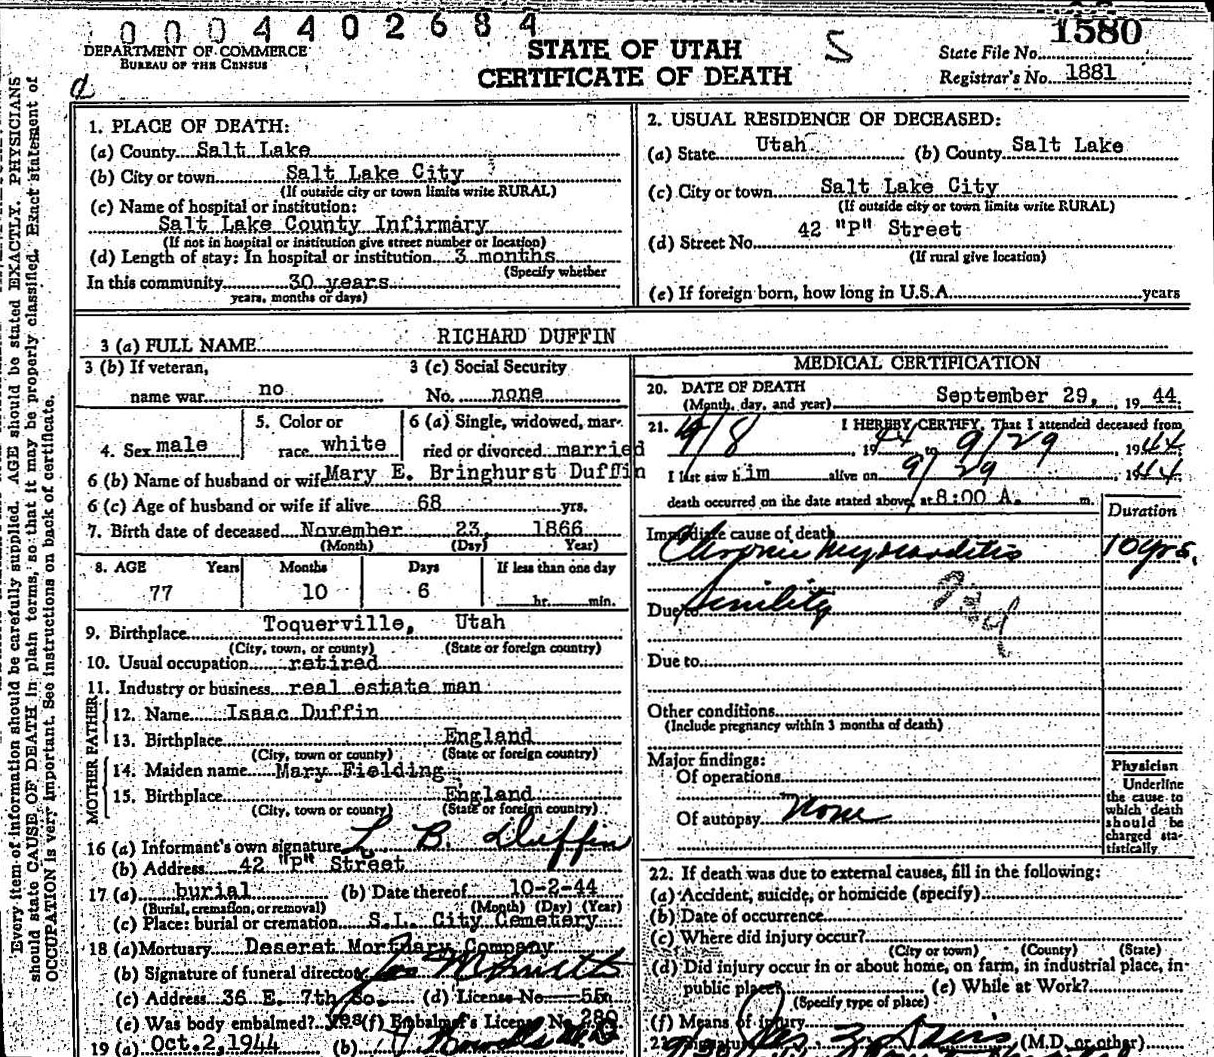 0004402684
DEPARTMENT OF COMMERCE
BUREAU OF THE CENSUS
STATE OF UTAH
CERTIFICATE OF DEATH
S
1580
State File No.
Registrar's No. 1881
d
Every item of information should be carefully supplied. AGE should be stated EXACTLY. PHYSICIANS
should state CAUSE OF DEATH in plain terms, so that it may be properly classified. Exact statement of
OCCUPATION is very important. See instructions on back of certificate.
1. PLACE OF DEATH:
(a) County Salt Lake
(b) City or town Salt Lake City
(If outside city or town limits write RURAL)
(c) Name of hospital or institution:
Salt Lake County Infirmary
(If not in hospital or institution give street number or location)
(d) Length of stay: In hospital or institution 3 months
(Specify whether
In this community 30 years
years, months or days)
2. USUAL RESIDENCE OF DECEASED:
(a) State Utah (b) County Salt Lake
(c) City or town Salt Lake City
(If outside city or town limits write RURAL)
(d) Street No. 42 "P" Street
(If rural give location)
(e) If foreign born, how long in U.S.A. years
3 (a) FULL NAME RICHARD DUFFIN
3 (b) If veteran, 3 (c) Social Security
name war no No. none
4. Sex male 5. Color or race white 6 (a) Single, widowed, mar-
ried or divorced married
6 (b) Name of husband or wife Mary E. Bringhurst Duffin
6 (c) Age of husband or wife if alive 68 yrs.
7. Birth date of deceased November 23, 1866
(Month) (Day) Year)
8. AGE Years Months Days If less than one day
77 10 6 hr. min.
9. Birthplace Toquerville, Utah
(City, town, or county) (State or foreign country)
10. Usual occupation retired
11. Industry or business real estate man
FATHER
12. Name Isaac Duffin
13. Birthplace England
(City, town or county) (State or foreign country)
MOTHER
14. Maiden name Mary Fielding
15. Birthplace England
(City, town or county) (State or foreign country)
16 (a) Informant's own signature L. B. Duffin
(b) Address 42 "P" Street
17 (a) burial (b) Date thereof 10-2-44
(Burial, cremation, or removal) (Month) (Day) (Year)
(c) Place: burial or cremation S.L. City Cemetery
18 (a) Mortuary Deseret Mortuary Company
(b) Signature of funeral director
(c) Address 36 E. 7th So. (d) License No. 55
(e) Was body embalmed? yes (f) Embalmer's License No. 280
19 (a) Oct. 2, 1944 (b)
MEDICAL CERTIFICATION
20. DATE OF DEATH
(Month, day, and year) September 29, 1944
21. I HEREBY CERTIFY, That I attended deceased from
9/8, 1944 to 9/29, 1944
I last saw him alive on 9/29 1944
death occurred on the date stated above, at 8:00 A. m.
Duration
Immediate cause of death
Chronic myocarditis 10 yrs.
Due to senility
Due to
Other conditions
(Include pregnancy within 3 months of death)
Major findings:
Of operations
Of autopsy None
Physician
Underline
the cause to
which death
should be
charged sta-
tistically.
22. If death was due to external causes, fill in the following:
(a) Accident, suicide, or homicide (specify)
(b) Date of occurrence
(c) Where did injury occur?
(City or town) (County) (State)
(d) Did injury occur in or about home, on farm, in industrial place, in
public place? (e) While at Work?
(Specify type of place)
(f) Means of injury
(M.D. or other)